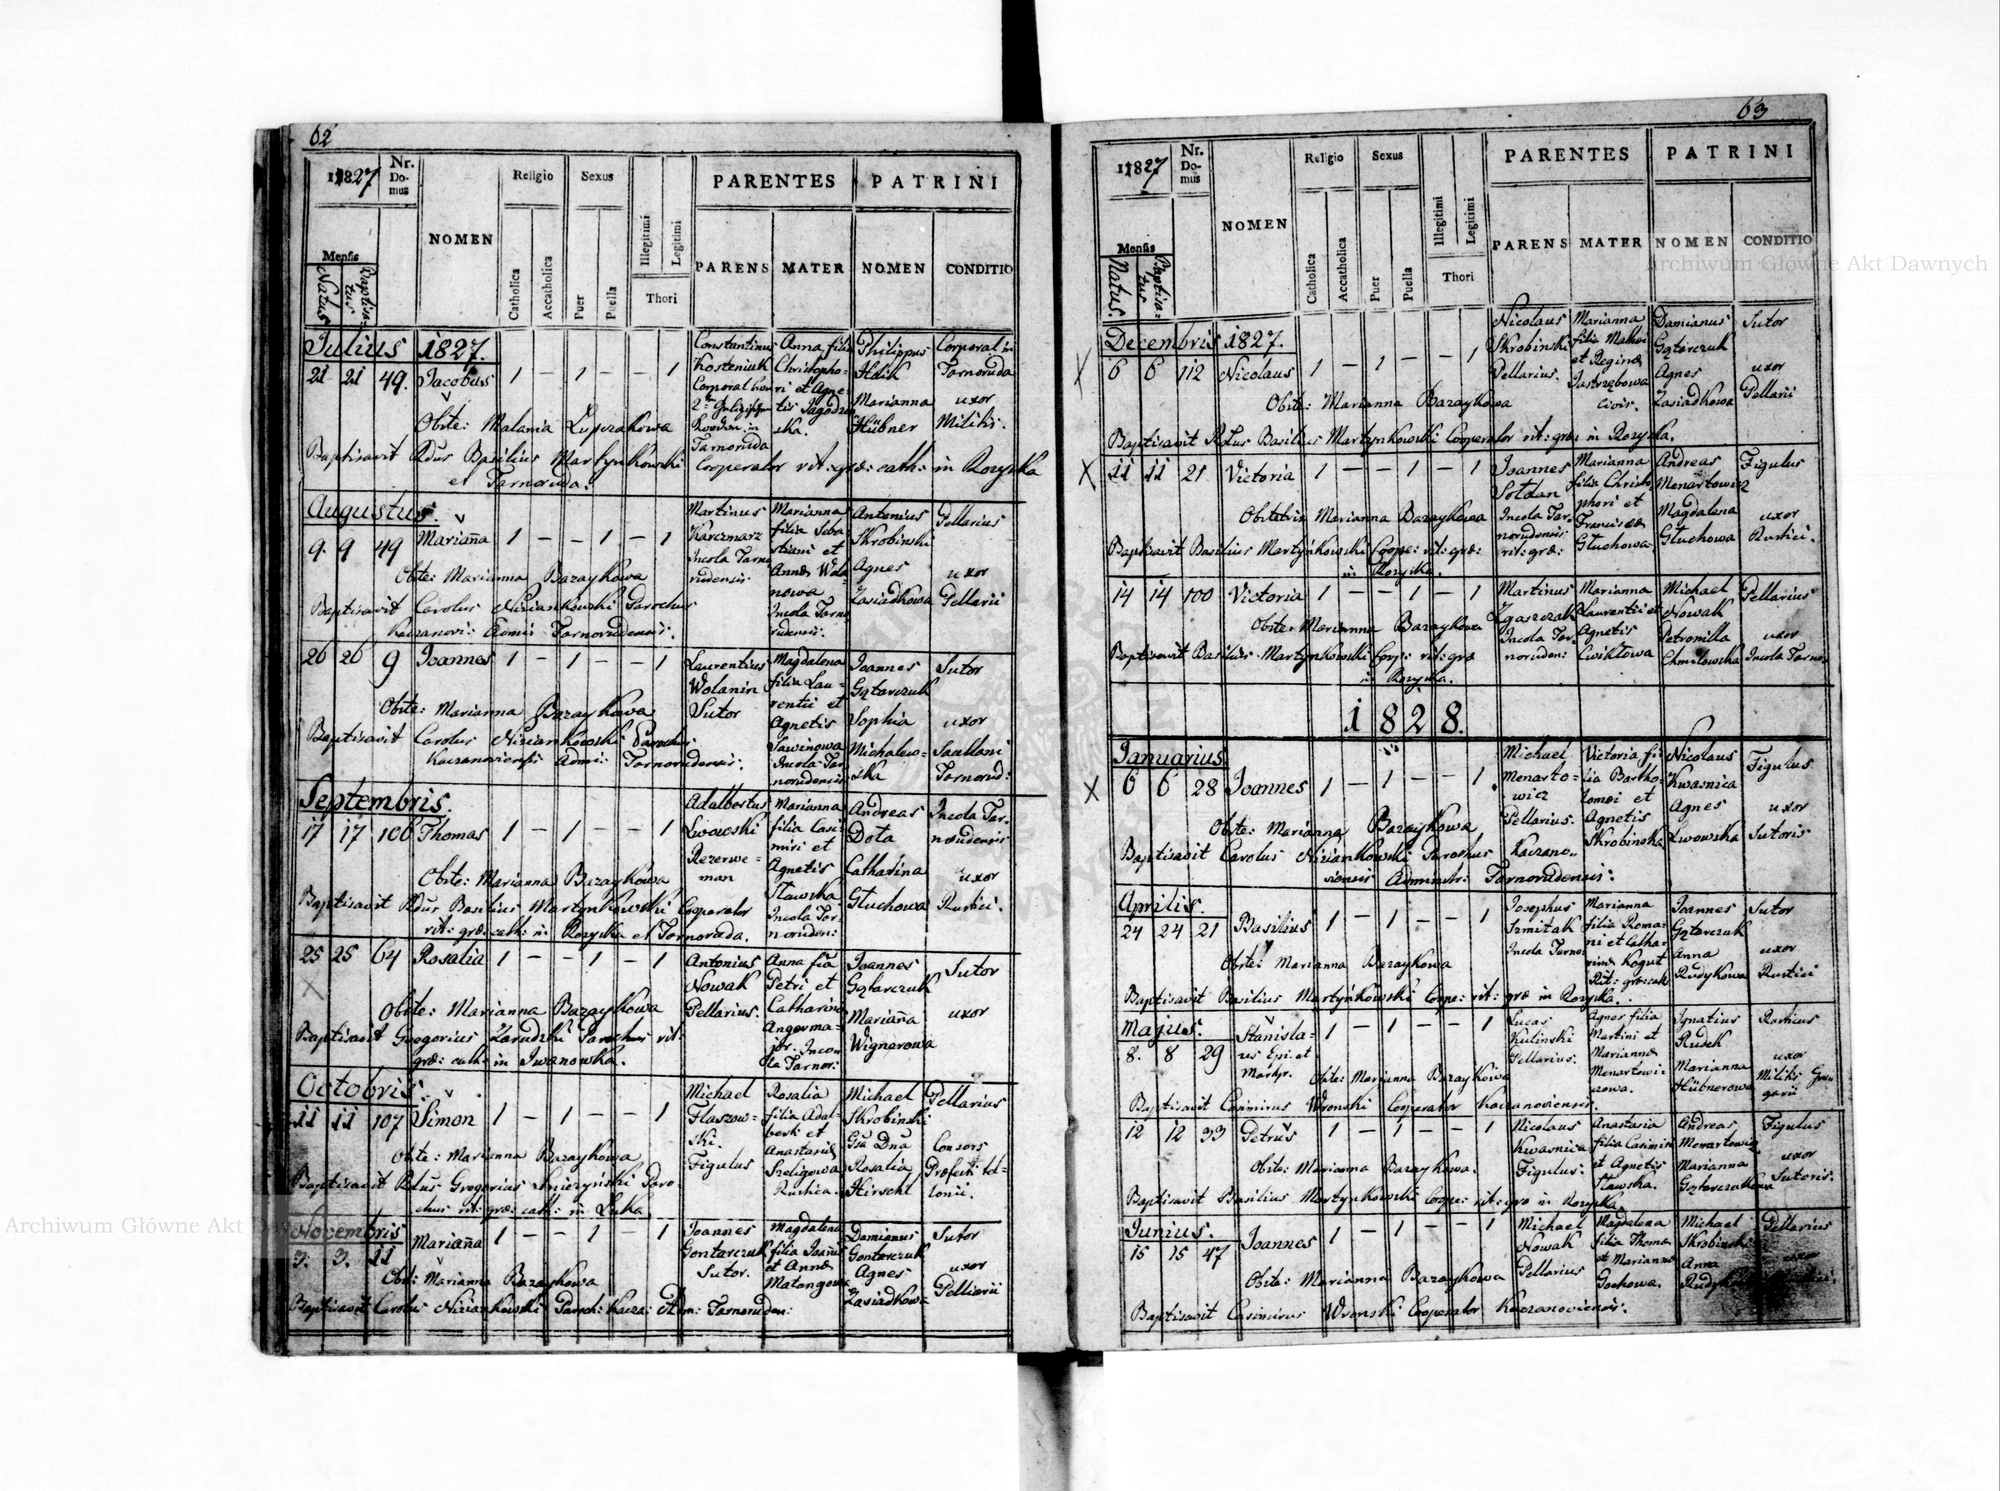 62
1827 Nr. Domus NOMEN Religio Sexus PARENTES PATRINI
Mensis Natus Baptisatus Catholica Accatholica Puer Puella Illegitimi Legitimi Thori PARENS MATER NOMEN CONDITIO
Julius 1827.
21 21 49. Jacobus 1 – 1 – – 1
Constantinus Kosteniuk Corporal
Tarnoruda
Anna filia Christophori et Agnetis
Philippus
Marianna Hübner
Corporal in Tarnoruda
uxor Militis.
Obste: Malania Lupczakowa
Baptisavit Rdus Basilius Martynkowski Cooperator rit: græ: cath: in Rozyska
et Tarnoruda.
Augustus.
9. 9 49 Mariaña 1 – – 1 – 1
Martinus Karczmarz Incola Tarnorudensis
Marianna filia Sebastiani et Annæ Wolanowa Incola Tarnorudensis.
Antonius Skrobinski
Agnes Zasiadkowa
Pellarius
uxor Pellarii
Obste: Marianna Bazaykowa
Baptisavit Carolus Niziankowski Parochus
Kaczanovi: Admi: Tarnorudensis.
26 26 9 Joannes 1 – 1 – – 1
Laurentius Wolanin Sutor
Magdalena filia Laurentii et Agnetis Sawinowa Incola Tarnorudensis
Joannes Gątarczuk
Sophia Michalewska
Sutor
uxor
Tarnorud:
Obste: Marianna Bazaykowa
Baptisavit Carolus Niziankowski Parochus
Kaczanoviensis Admi: Tarnorudensis.
Septembris.
17 17 106 Thomas 1 – 1 – – 1
Adalbertus Lwowski Rezerweman
Marianna filia Casimiri et Agnetis Stawska Incola Tarnoruden:
Andreas Dota
Catharina Głuchowa
Incola Tarnorudensis
uxor Rustici.
Obste: Marianna Bazaykowa
Baptisavit Rdus Basilius Martynkowski Cooperator
rit: græ: cath: in Rozyska et Tarnoruda.
25 25 64 Rosalia 1 – – 1 – 1
Antonius Nowak Pellarius.
Anna fia Petri et Catharinæ
Joannes Gątarczuk
Mariaña Wignerowa
Sutor
uxor
Obste: Marianna Bazaykowa
Baptisavit Gregorius Zarudzki Parochus rit:
græ: cath: in Iwanowka.
Octobris.
11 11 107 Simon 1 – 1 – – 1
Michael Flaszowski. Figulus
Rosalia filia Adalberti et Anastasiæ Szeligowa Rustica.
Michael Skrobinski
Gsa Dña Rosalia Hirschl
Pellarius
Consors Præfecti
Obste: Marianna Bazaykowa
Baptisavit Rdus Gregorius Parochus rit: græ: cath: in Luka
Novembris
3. 3. 11 Mariaña 1 – – 1 – 1
Joannes Gontarczuk Sutor.
Magdalena filia Joañis et Annæ Matongowa
Damianus Gontarczuk
Agnes Zasiadkowa
Sutor
uxor Pelliarii
Obst: Marianna Bazaykowa
Baptisavit Carolus Niziankowski Paroch: Kacza: Adm: Tarnoruden:
63
1827 Nr. Domus NOMEN Religio Sexus PARENTES PATRINI
Mensis Natus. Baptisatus Catholica Accatholica Puer Puella Illegitimi Legitimi Thori PARENS MATER NOMEN CONDITIO
Decembris 1827.
6 6 112 Nicolaus 1 – 1 – – 1
Nicolaus Skrobinski Pellarius.
Marianna filia Mathei et Reginæ Jastrzębowa
Damianus Gątarczuk
Agnes Zasiadkowa
Sutor
uxor Pellarii
Obste: Marianna Bazaykowa
Baptisavit Rdus Basilius Martynkowski Cooperator rit: græ: in Rozyska.
11 11 21 Victoria 1 – – 1 – 1
Joannes Sołdan Incola Tarnorudensis rit: græ:
Marianna filia Christophori et Franciscæ Głuchowa
Andreas Menartowicz
Magdalena Głuchowa
Figulus
uxor Rustici.
Obstetrix Marianna Bazaykowa
Baptisavit Basilius Martynkowski Coope: rit: græ:
in Rozyska.
14 14 100 Victoria 1 – – 1 – 1
Martinus Zgaszczak Incola Tarnoruden:
Marianna Laurentii et Agnetis Cwiklowa
Michael Nowak
Petronilla Chmilowska
Pellarius
uxor Incola Tarno:
Obste: Marianna Bazaykowa
Baptisavit Basilius Martynkowski Coop: rit: græ
in Rozyska.
1828.
Januarius
6 6 28 Joannes 1 – 1 – – 1
Michael Menartowicz Pellarius.
Victoria filia Bartholomei et Agnetis Skrobinska
Nicolaus Kwasnica
Agnes Lwowska
Figulus
uxor Sutoris
Obste: Marianna Bazaykowa
Baptisavit Carolus Niziankowski Parochus Kaczanoviensis Administr: Tarnorudensis:
Aprilis.
24 24 21 Basilius 1 – 1 – – 1
Josephus Szmitak Incola Tarno
Marianna filia Romani et Catharinæ Kogut Rit: græ: cath
Joannes Gątarczuk
Anna Rudykowa
Sutor
uxor Rustici
Obste: Marianna Bazaykowa
Baptisavit Basilius Martynkowski Coope: rit: græ in Rozyska.
Majus.
8. 8 29 Stanislaus Epi. et Martyr. 1 – 1 – – 1
Lucas Kulinski Pellarius.
Agnes filia Martini et Mariannæ Menartowiczowa.
Ignatius Rudek
Marianna Hübnerowa
Rusticus
uxor Militis
Obste: Marianna Bazaykowa
Baptisavit Casimirus Wronski Cooperator Kaczanoviensis.
12 12 33 Petrus 1 – 1 – – 1
Nicolaus Kwasnica Figulus.
Anastasia filia Casimiri et Agnetis Stawska.
Andreas Menartowicz
Marianna Gątarczukowa
Figulus
uxor Sutoris.
Obste: Marianna Bazaykowa.
Baptisavit Basilius Martynkowski Coope: rit: græ in Rozyska
Junius.
15 15 47 Joannes 1 – 1 – – 1
Michael Nowak Pellarius
Magdalena filia Thomæ et Mariannæ Gochowa.
Michael Skrobinski
Anna
Pellarius
uxor
Obste: Marianna Bazaykowa
Baptisavit Casimirus Wronski Cooperator Kaczanoviensis.
Archiwum Główne Akt Dawnych
Archiwum Główne Akt Dawnych